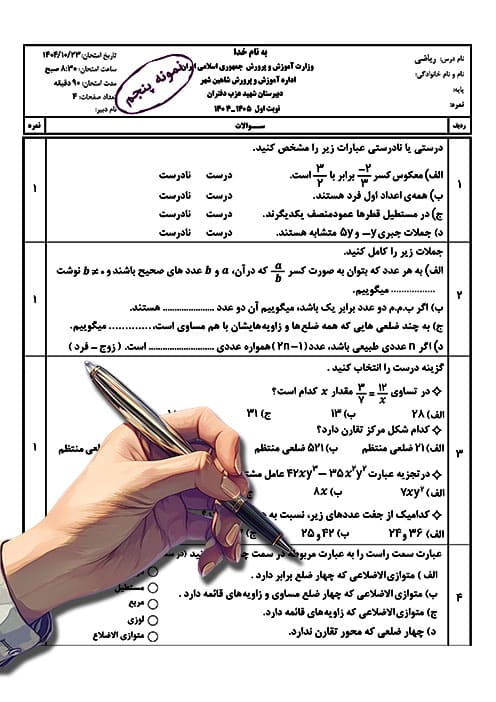 به نام خدا
وزارت آموزش و پرورش جمهوری اسلامی ایران
اداره آموزش و پرورش شاهین شهر
دبیرستان شهید عزب دفتران
نوبت اول ۱۴۰۵-۱۴۰۴
نام درس: ریاضی
نام و نام خانوادگی:
پایه:
نمره:
تاریخ امتحان: ۱۴۰۴/۱۰/۲۳
ساعت امتحان: ۸:۳۰ صبح
مدت امتحان: ۹۰ دقیقه
تعداد صفحات: ۴
نام دبیر:
نمونه پنجم
ردیف سـوالات نمره
۱ درستی یا نادرستی عبارات زیر را مشخص کنید. ۱
الف) معکوس کسر -۲/۳ برابر با ۳/۲ است. درست نادرست
ب) همه‌ی اعداد اول فرد هستند. درست نادرست
ج) در مستطیل قطرها عمودمنصف یکدیگرند. درست نادرست
د) جملات جبری -y و 5y متشابه هستند. درست نادرست
۲ جملات زیر را کامل کنید. ۱
الف) به هر عدد که بتوان به صورت کسر a/b که در آن، a و b عدد های صحیح باشند و b ≠ ۰ نوشت
................ میگوییم.
ب) اگر ب.م.م دو عدد برابر یک باشد، میگوییم آن دو عدد ...................... هستند.
ج) به چند ضلعی هایی که همه ضلع‌ها و زاویه‌هایشان با هم مساوی است، ............. میگوییم.
د) اگر n عددی طبیعی باشد، عدد (2n-1) همواره عددی ........................... است. (زوج - فرد)
۳ گزینه درست را انتخاب کنید. ۱
در تساوی ۳/۷ = ۱۲/x مقدار x کدام است؟
الف) ۲۸ ب) ۱۳ ج) ۳۱
کدام شکل مرکز تقارن دارد؟
الف) 21 ضلعی منتظم ب) 521 ضلعی منتظم ضلعی منتظم
در تجزیه عبارت 42xy³ - 35x²y² عامل
الف) 7xy² ب) 8x
کدامیک از جفت عددهای زیر، نسبت به
الف) ۳۶ و ۲۴ ب) ۴۲ و ۲۵
۴ عبارت سمت راست را به عبارت مربوطه در سمت
الف) متوازی الاضلاعی که چهار ضلع برابر دارد.
ب) متوازی الاضلاعی که چهار ضلع مساوی و زاویه‌های قائمه دارد. مستطیل
ج) متوازی الاضلاعی که زاویه‌های قائمه دارد. مربع
لوزی
د) چهار ضلعی که محور تقارن ندارد. متوازی الاضلاع